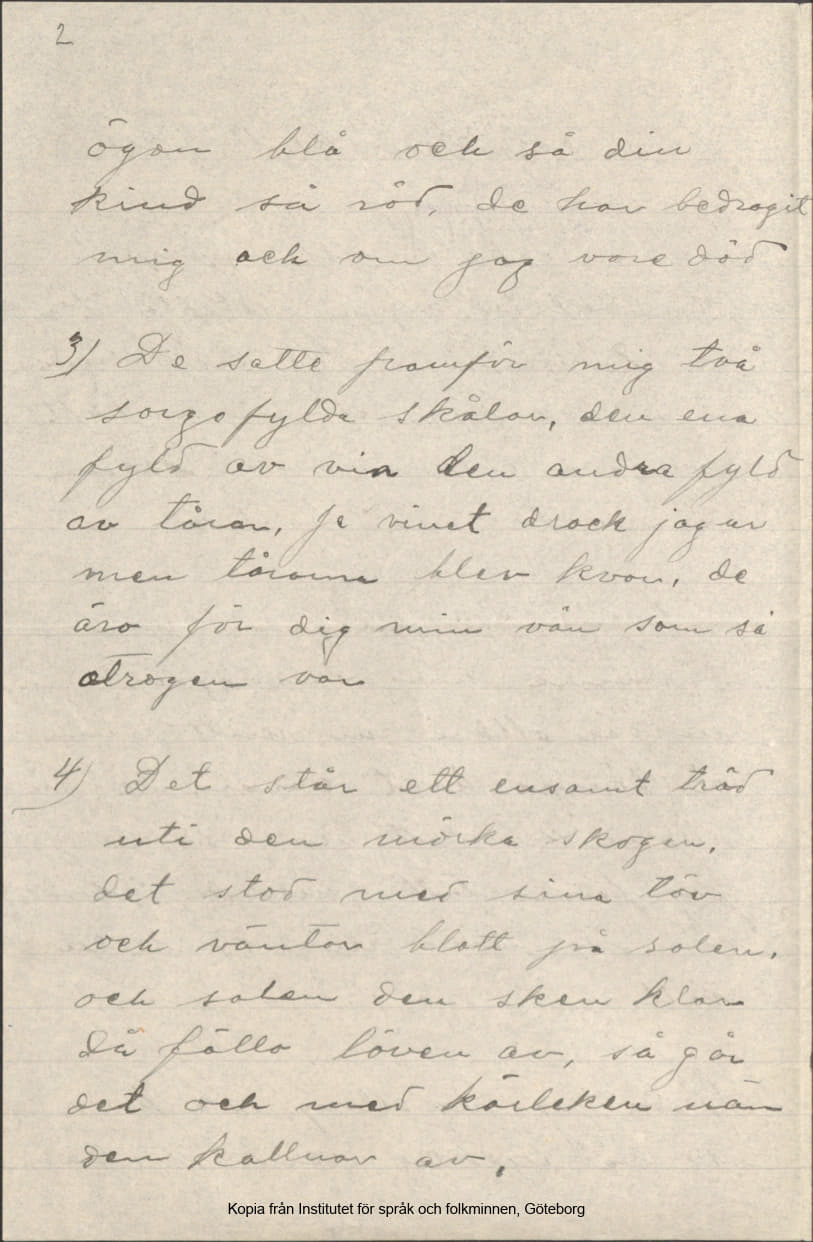 2
ögon blå och så din
kind så röd, de har bedragit
mig och om jag vore död
3) De satte framför mig två
sorgofyllda skålar, den ena
fyld av vin den andra fyld
av tårar, ja vinet drack jag ur
men tårarna blev kvar, de
äro för dig min vän som så
otrogen var
4) Det står ett ensamt träd
uti den mörka skogen,
det stod med sina löv
och väntar blott på solen,
och solen den sken klar
då föllo löven av, så går
det och med kärleken när
den kallnar av,
Kopia från Institutet för språk och folkminnen, Göteborg